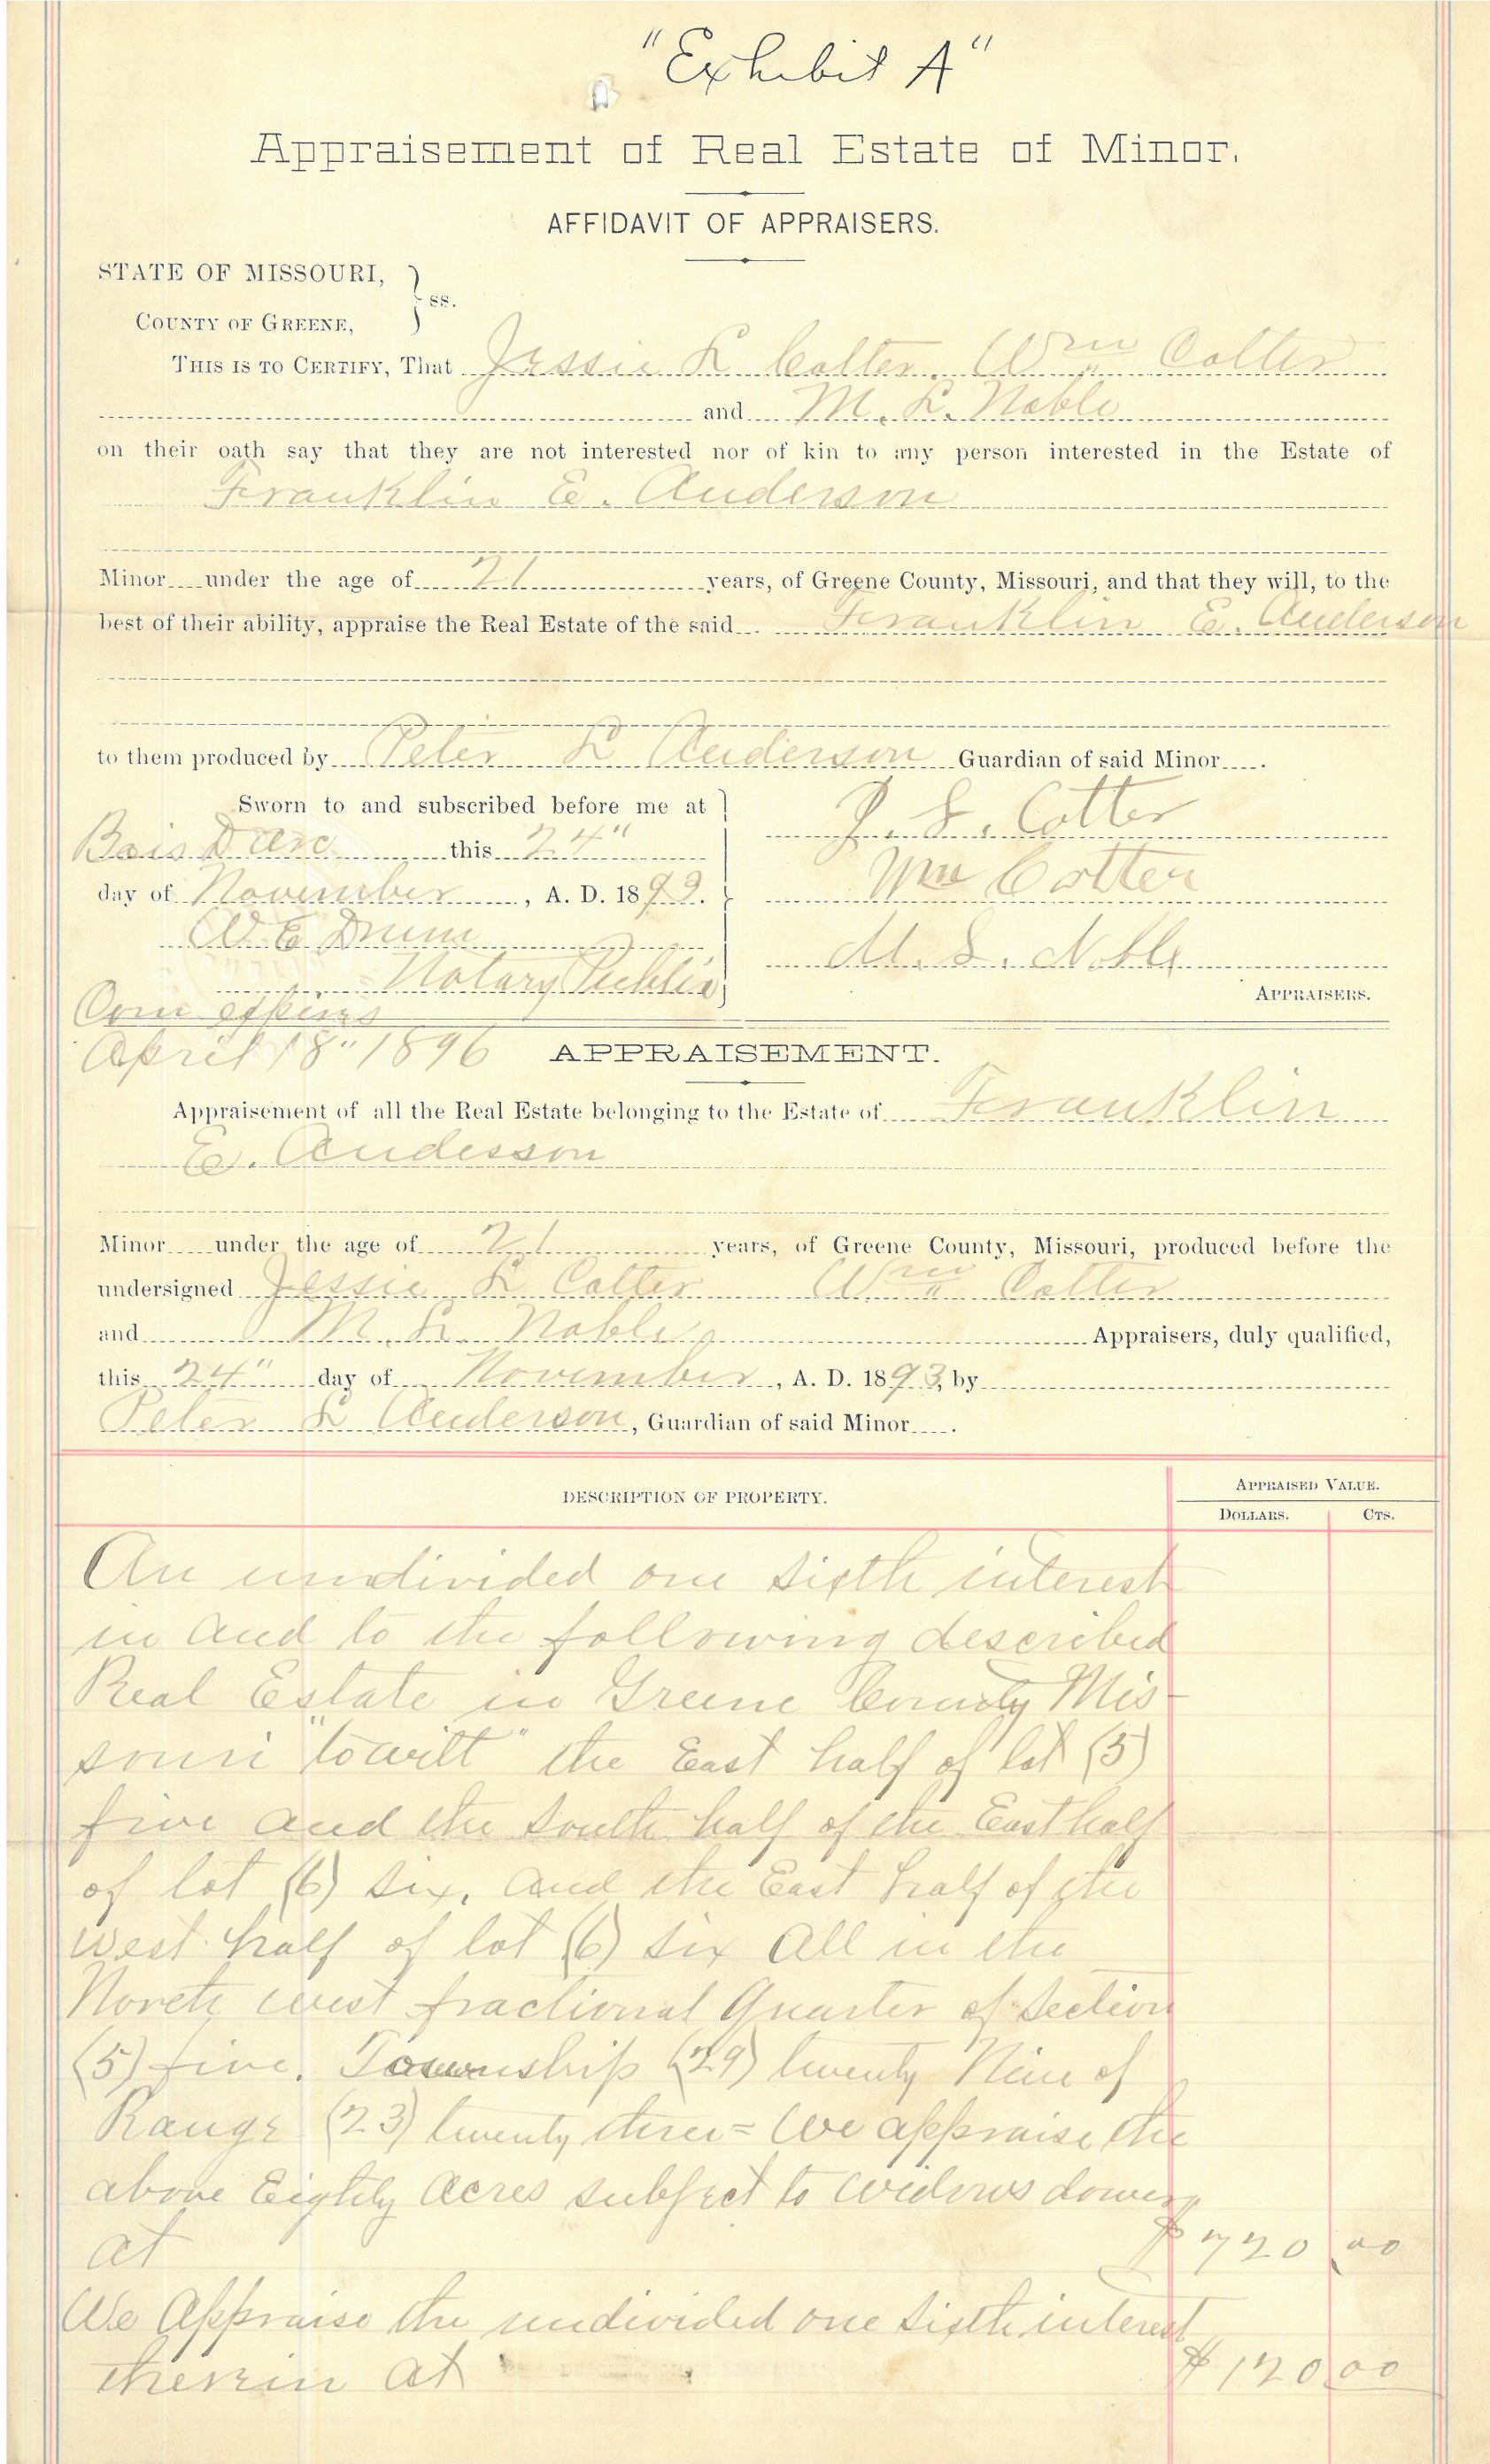 "Exhibit A"
Appraisement of Real Estate of Minor.
AFFIDAVIT OF APPRAISERS.
STATE OF MISSOURI,
ss.
COUNTY OF GREENE,
THIS IS TO CERTIFY, That Jessie L Cotter, Wm Cotter
and M. L. Noble
on their oath say that they are not interested nor of kin to any person interested in the Estate of
Franklin E. Anderson
Minor under the age of 21 years, of Greene County, Missouri, and that they will, to the
best of their ability, appraise the Real Estate of the said Franklin E. Anderson
to them produced by Peter L Anderson Guardian of said Minor .
Sworn to and subscribed before me at
Bois D arc this 24"
day of November , A. D. 1893.
W E Drum
Notary Public
Com expires
April 18" 1896
J. L. Cotter
Wm Cotter
M. L. Noble
APPRAISERS.
APPRAISEMENT.
Appraisement of all the Real Estate belonging to the Estate of Franklin
E. Andesson
Minor under the age of 21 years, of Greene County, Missouri, produced before the
undersigned Jessie L Cotter Wm Cotter
and M. L. Noble Appraisers, duly qualified,
this 24" day of November , A. D. 1893, by
Peter L Anderson, Guardian of said Minor .
DESCRIPTION OF PROPERTY.
APPRAISED VALUE.
DOLLARS. CTS.
An undivided one sixth interest
in and to the following described
Real Estate in Greene County Mis-
souri "towitt" the East half of lot (5)
five and the South half of the East half
of lot (6) six, and the East half of the
west half of lot (6) six All in the
North west fractional Quarter of Section
(5) five. Township (29) twenty Nine of
Range (23) twenty three = We appraise the
above Eighty Acres subject to widows dower
at $720 00
We Appraise the undivided one sixth interest
therein at $120 00